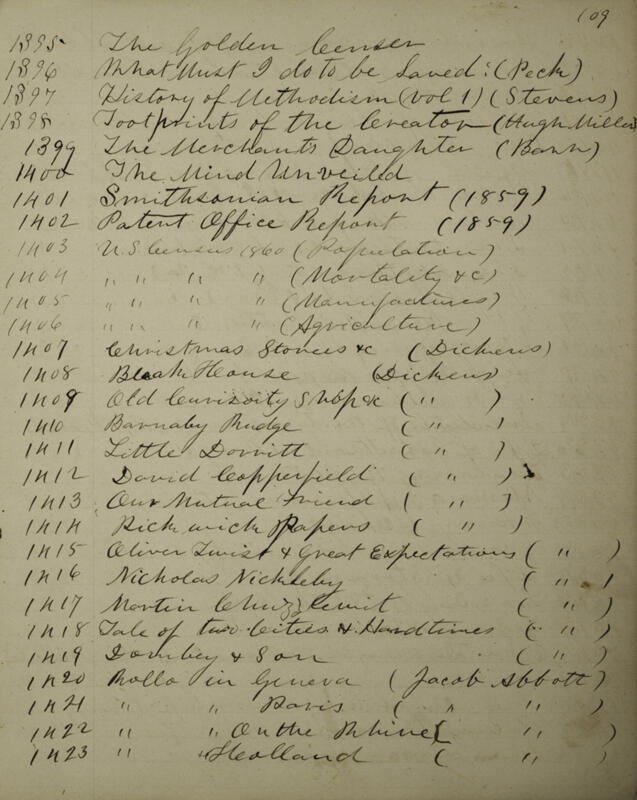 109
1395 The Golden Censer
1396 What Must I do to be Saved? (Peck)
1397 History of Methodism (vol 1) (Stevens)
1398 Footprints of the Creator (Hugh Miller)
1399 The Merchants Daughter (Bann)
1400 The Mind Unveiled
1401 Smithsonian Report (1859)
1402 Patent Office Report (1859)
1403 U.S Census 1860 (Population)
1404 " " " " (Mortality &c)
1405 " " " " (Manufactures)
1406 " " " " (Agriculture)
1407 Christmas Stories &c (Dickens)
1408 Bleak House (Dickens)
1409 Old Curiosity Shop &c ( " )
1410 Barnaby Rudge ( " )
1411 Little Dorritt ( " )
1412 David Copperfield ( " )
1413 Our Mutual Friend ( " )
1414 Pickwick Papers ( " )
1415 Oliver Twist & Great Expectations ( " )
1416 Nicholas Nickleby ( " )
1417 Martin Chuzzlewit ( " )
1418 Tale of two Cities & Hardtimes ( " )
1419 Dombey & Son ( " )
1420 Rollo in Geneva (Jacob Abbott)
1421 " " Paris ( " " )
1422 " " On the Rhine ( " )
1423 " " Holland ( " )